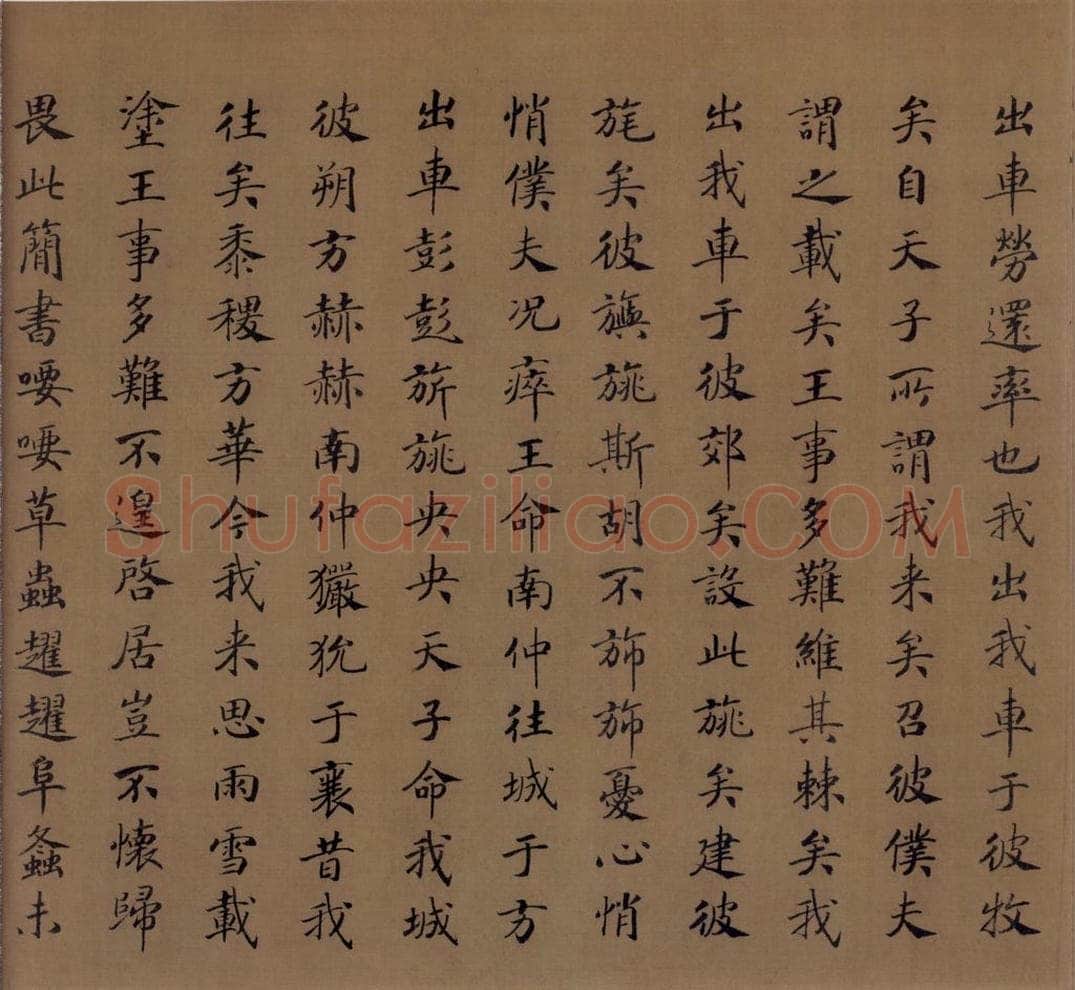 出車勞還率也我出我車于彼牧
矣自天子所謂我来矣召彼僕夫
謂之載矣王事多難維其棘矣我
出我車于彼郊矣設此旐矣建彼
旄矣彼旟旐斯胡不斾斾憂心悄
悄僕夫况瘁王命南仲往城于方
出車彭彭旂旐央央天子命我城
彼朔方赫赫南仲玁狁于襄昔我
往矣黍稷方華今我来思雨雪載
塗王事多難不遑啓居豈不懷歸
畏此簡書喓喓草蟲趯趯阜螽未
Shufaziliao.COM